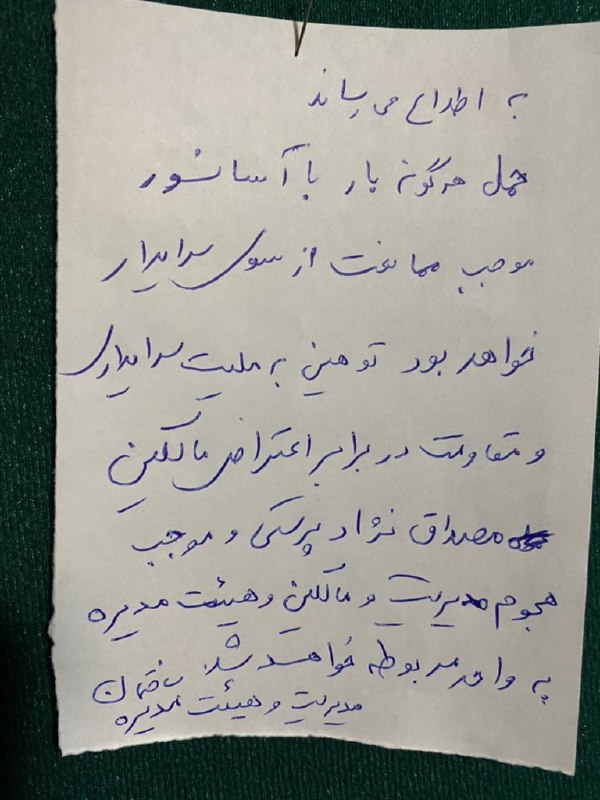 به اطلاع می رساند
حمل هرگونه بار با آسانسور
موجب ممانعت از سوی سرایدار
خواهد بود توهین به ملیت سرایداری
و مقاومت در برابر اعتراض مالکین
مصداق نژاد پرستی و موجب
هجوم مدیریت و مالکین و هیئت مدیره
به واحد مربوطه خواهند شد.
مدیریت و هیئت مدیره ساختمان